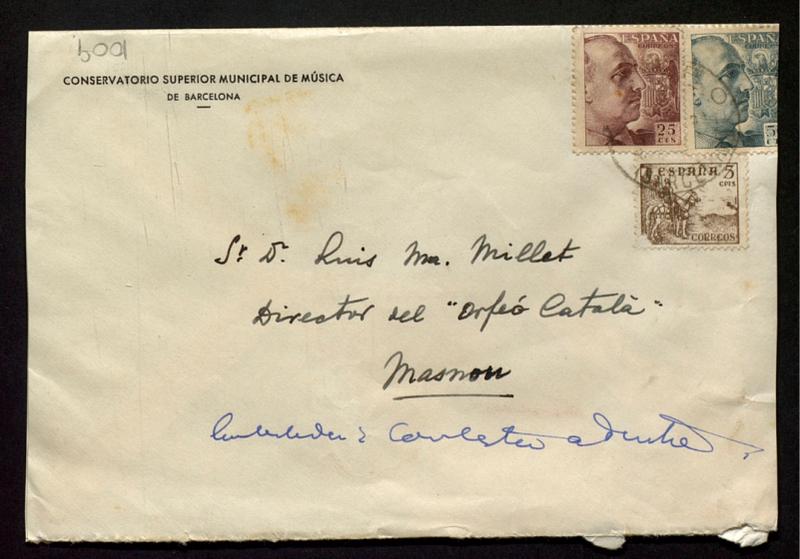 1009
CONSERVATORIO SUPERIOR MUNICIPAL DE MÚSICA
DE BARCELONA
ESPAÑA
CORREOS
25
CTS
ESPAÑA
CORREOS
ESPAÑA 5
CTS
CORREOS
Sr. D. Luis Ma. Millet
Director del "Orfeó Català"
Masnou